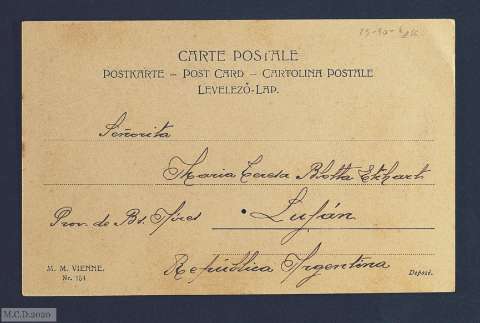 CARTE POSTALE
POSTKARTE – POST CARD – CARTOLINA POSTALE
LEVELEZŐ-LAP.
Señorita
Maria Teresa Blotta Etchart
Prov. de Bs. Aires
Luján
República Argentina
M. M. VIENNE.
Nr. 154
Deposé.
M.C.D.2020